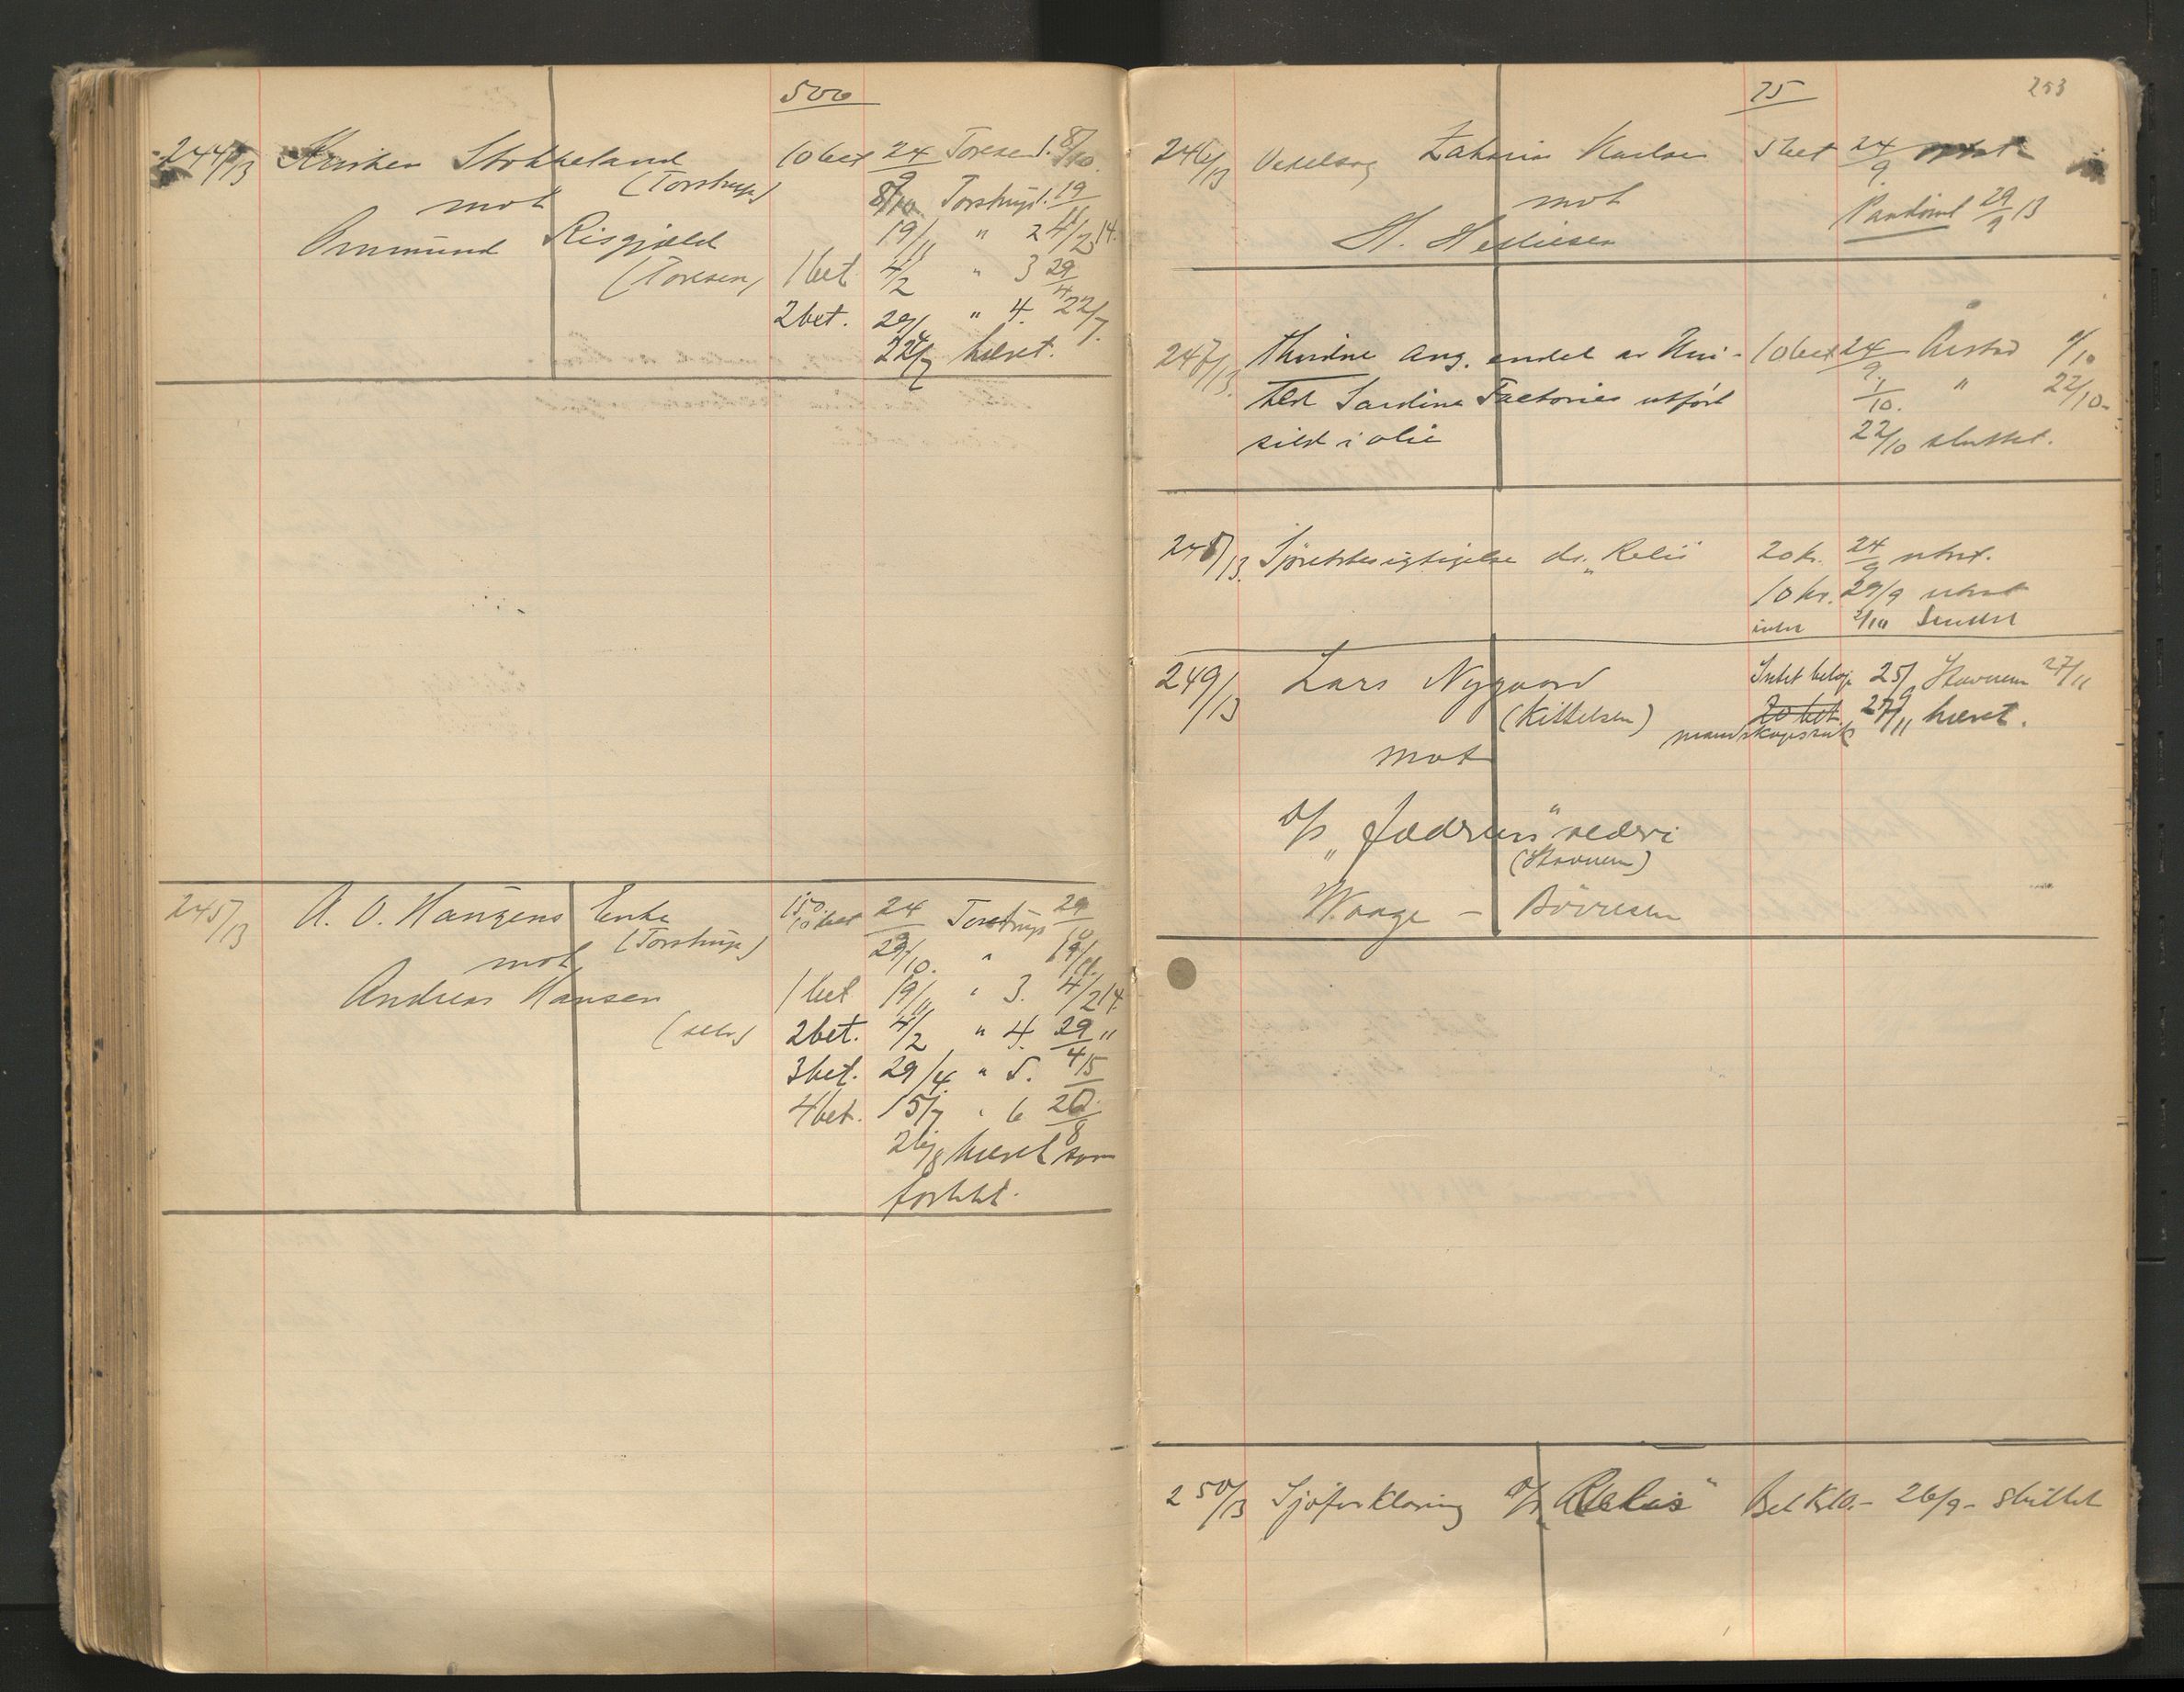 500
244/13 Karsten Stokkeland 10 bet 24/9 Toresen 1. 8/10.
(Torstrup) 8/10 Torstrup 1. 19/11
mot
Ommund Risgjæld 19/11 " 2 4/2 14.
(Toresen) 1 bet 4/2 " 3 29/4
2 bet. 29/4 " 4. 22/7.
22/7 hævet.
245/13 A. O. Haugens Enke 150. 10 bet 24/9 Torstrup 29/10
(Torstrup) 29/10. " 19/11.
mot
Andreas Hansen 1 bet 19/11 " 3. 4/2 14.
(selv) 2 bet. 4/2 " 4. 29/4 "
3 bet. 29/4. " 5.
4 bet. 15/7 " 6
26/8 hævet som
forlikt.
75
253
246/13 Vekselsag Zakarias Karlsen 5 bet 24/9
mot 29/9 13
H.
247/13 ang. andel av Uni- 10 bet 24/9. Årstad 1/10
ted Sardine Factories utført 1/10. " 22/10.
sild i olie 22/10 sluttet.
248/13. Sjøretsbesigtigelse ds. "Relis" 20 kr. 24/9 utsat.
10 kr. 29/9 utsat
intet 2/10 Sluttet
249/13 Lars Nygaard Intet beløp 25/9 Stavnem 27/11
(Kittelsen) 20 bet. 27/11 hævet.
mandskapssak
mot
D/S "Jædren"s rederi
(Stavnem)
Waage — Børresen
250/13 Sjøforklaring D/S "Relis" Bet Kr 10.- 26/9- sluttet